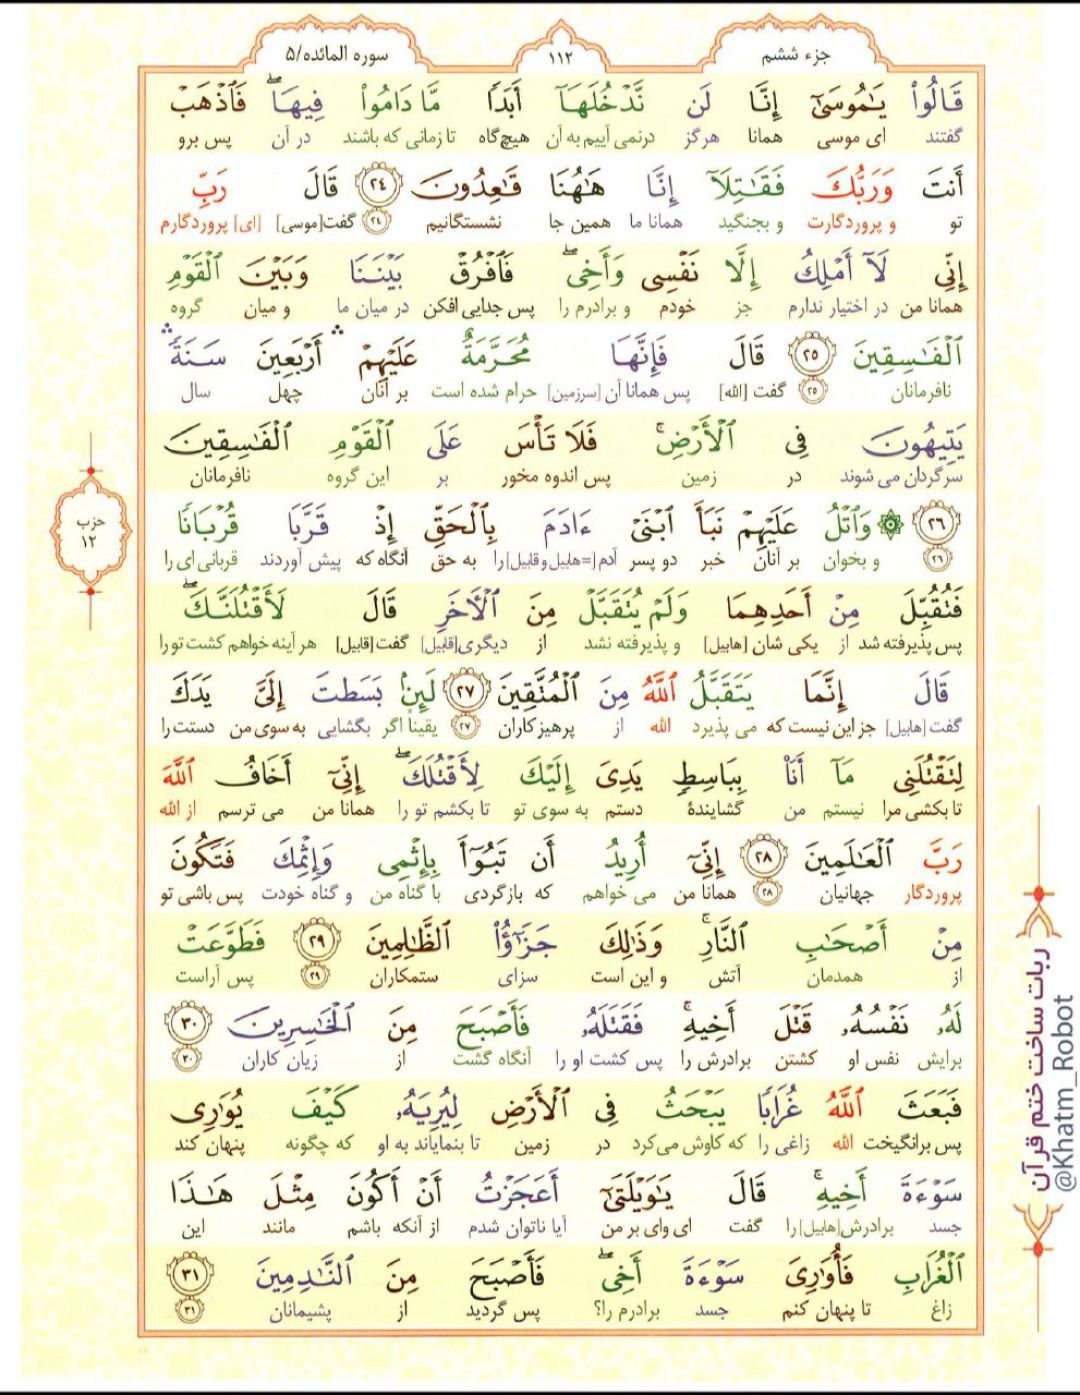 جزء ششم
۱۱۲
سوره المائده/۵
قَالُوا۟ يَـٰمُوسَىٰٓ إِنَّا لَن نَّدْخُلَهَآ أَبَدًا مَّا دَامُوا۟ فِيهَا ۖ فَٱذْهَبْ
گفتند ای موسی همانا هرگز درنمی آییم به آن هیچ‌گاه تا زمانی که باشند در آن پس برو
أَنتَ وَرَبُّكَ فَقَـٰتِلَآ إِنَّا هَـٰهُنَا قَـٰعِدُونَ ۲۴ قَالَ رَبِّ
تو و پروردگارت و بجنگید همانا ما همین جا نشستگانیم ۲۴ گفت[موسی] [ای] پروردگارم
إِنِّى لَآ أَمْلِكُ إِلَّا نَفْسِى وَأَخِى ۖ فَٱفْرُقْ بَيْنَنَا وَبَيْنَ ٱلْقَوْمِ
همانا من در اختیار ندارم جز خودم و برادرم را پس جدایی افکن در میان ما و میان گروه
ٱلْفَـٰسِقِينَ ۲۵ قَالَ فَإِنَّهَا مُحَرَّمَةٌ عَلَيْهِمْ ۛ أَرْبَعِينَ سَنَةً ۛ
نافرمانان ۲۵ گفت [الله] پس همانا آن [سرزمین] حرام شده است بر آنان چهل سال
يَتِيهُونَ فِى ٱلْأَرْضِ ۚ فَلَا تَأْسَ عَلَى ٱلْقَوْمِ ٱلْفَـٰسِقِينَ
سرگردان می شوند در زمین پس اندوه مخور بر این گروه نافرمانان
۲۶ ۞ وَٱتْلُ عَلَيْهِمْ نَبَأَ ٱبْنَىْ ءَادَمَ بِٱلْحَقِّ إِذْ قَرَّبَا قُرْبَانًا
۲۶ و بخوان بر آنان خبر دو پسر آدم[=هابیل و قابیل] را به حق آنگاه که پیش آوردند قربانی ای را
فَتُقُبِّلَ مِنْ أَحَدِهِمَا وَلَمْ يُتَقَبَّلْ مِنَ ٱلْـَٔاخَرِ قَالَ لَأَقْتُلَنَّكَ ۖ
پس پذیرفته شد از یکی شان [هابیل] و پذیرفته نشد از دیگری[قابیل] گفت[قابیل] هر آینه خواهم کشت تو را
قَالَ إِنَّمَا يَتَقَبَّلُ ٱللَّهُ مِنَ ٱلْمُتَّقِينَ ۲۷ لَئِنۢ بَسَطتَ إِلَىَّ يَدَكَ
گفت [هابیل] جز این نیست که می پذیرد الله از پرهیزکاران ۲۷ یقیناً اگر بگشایی به سوی من دستت را
لِتَقْتُلَنِى مَآ أَنَا۠ بِبَاسِطٍ يَدِىَ إِلَيْكَ لِأَقْتُلَكَ ۖ إِنِّىٓ أَخَافُ ٱللَّهَ
تا بکشی مرا نیستم من گشایندهٔ دستم به سوی تو تا بکشم تو را همانا من می ترسم از الله
رَبَّ ٱلْعَـٰلَمِينَ ۲۸ إِنِّىٓ أُرِيدُ أَن تَبُوٓأَ بِإِثْمِى وَإِثْمِكَ فَتَكُونَ
پروردگار جهانیان ۲۸ همانا من می خواهم که بازگردی با گناه من و گناه خودت پس باشی تو
مِنْ أَصْحَـٰبِ ٱلنَّارِ ۚ وَذَٰلِكَ جَزَٰٓؤُا۟ ٱلظَّـٰلِمِينَ ۲۹ فَطَوَّعَتْ
از همدمان آتش و این است سزای ستمکاران ۲۹ پس آراست
لَهُۥ نَفْسُهُۥ قَتْلَ أَخِيهِ ۚ فَقَتَلَهُۥ فَأَصْبَحَ مِنَ ٱلْخَـٰسِرِينَ ۳۰
برایش نفس او کشتن برادرش را پس کشت او را آنگاه گشت از زیان کاران ۳۰
فَبَعَثَ ٱللَّهُ غُرَابًا يَبْحَثُ فِى ٱلْأَرْضِ لِيُرِيَهُۥ كَيْفَ يُوَٰرِى
پس برانگیخت الله زاغی را که کاوش می‌کرد در زمین تا بنمایاند به او که چگونه پنهان کند
سَوْءَةَ أَخِيهِ ۚ قَالَ يَـٰوَيْلَتَىٰٓ أَعَجَزْتُ أَنْ أَكُونَ مِثْلَ هَـٰذَا
جسد برادرش[هابیل] را گفت ای وای بر من آیا ناتوان شدم از آنکه باشم مانند این
ٱلْغُرَابِ فَأُوَٰرِىَ سَوْءَةَ أَخِى ۖ فَأَصْبَحَ مِنَ ٱلنَّـٰدِمِينَ ۳۱
زاغ تا پنهان کنم جسد برادرم را؟ پس گردید از پشیمانان ۳۱
حزب
۱۲
ربات ساخت ختم قرآن
@Khatm_Robot